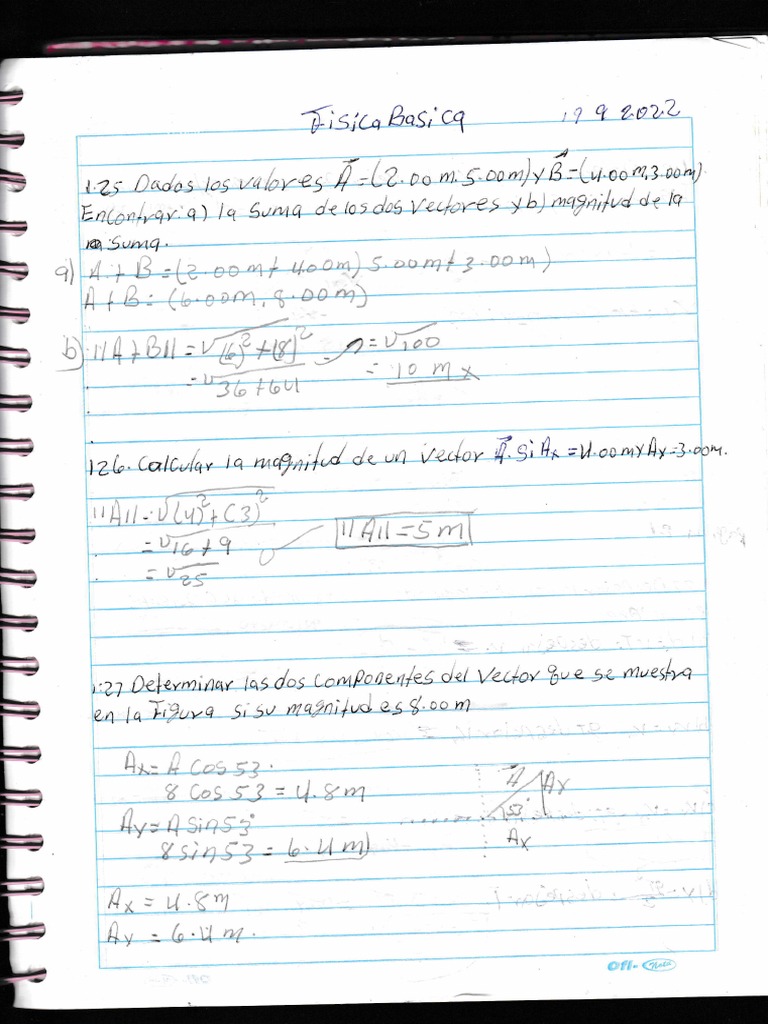 Fisica Basica 19 9 2022
1.25 Dados los valores A=(2.00m, 5.00m) y B=(4.00m, 3.00m)
Encontrar a) la Suma de los dos vectores y b) magnitud de la
Suma.
a) A + B = (2.00m + 4.00m) 5.00m + 3.00m)
A + B = (6.00m, 8.00m)
b) ||A + B|| = √(6)² + (8)² = √100
= √36+64 = 10 m x
1.26. Calcular la magnitud de un vector A. Si Ax = 4.00m y Ay = 3.00m.
||A|| = √(4)² + (3)²
= √16 + 9 ||A|| = 5 m
= √25
1.27 Determinar las dos componentes del vector que se muestra
en la Figura si su magnitud es 8.00m
Ax = A cos 53°
8 cos 53 = 4.8m
Ay = A sin 53°
8 sin 53 = 6.4 m
A Ay
53°
Ax
Ax = 4.8m
Ay = 6.4m.